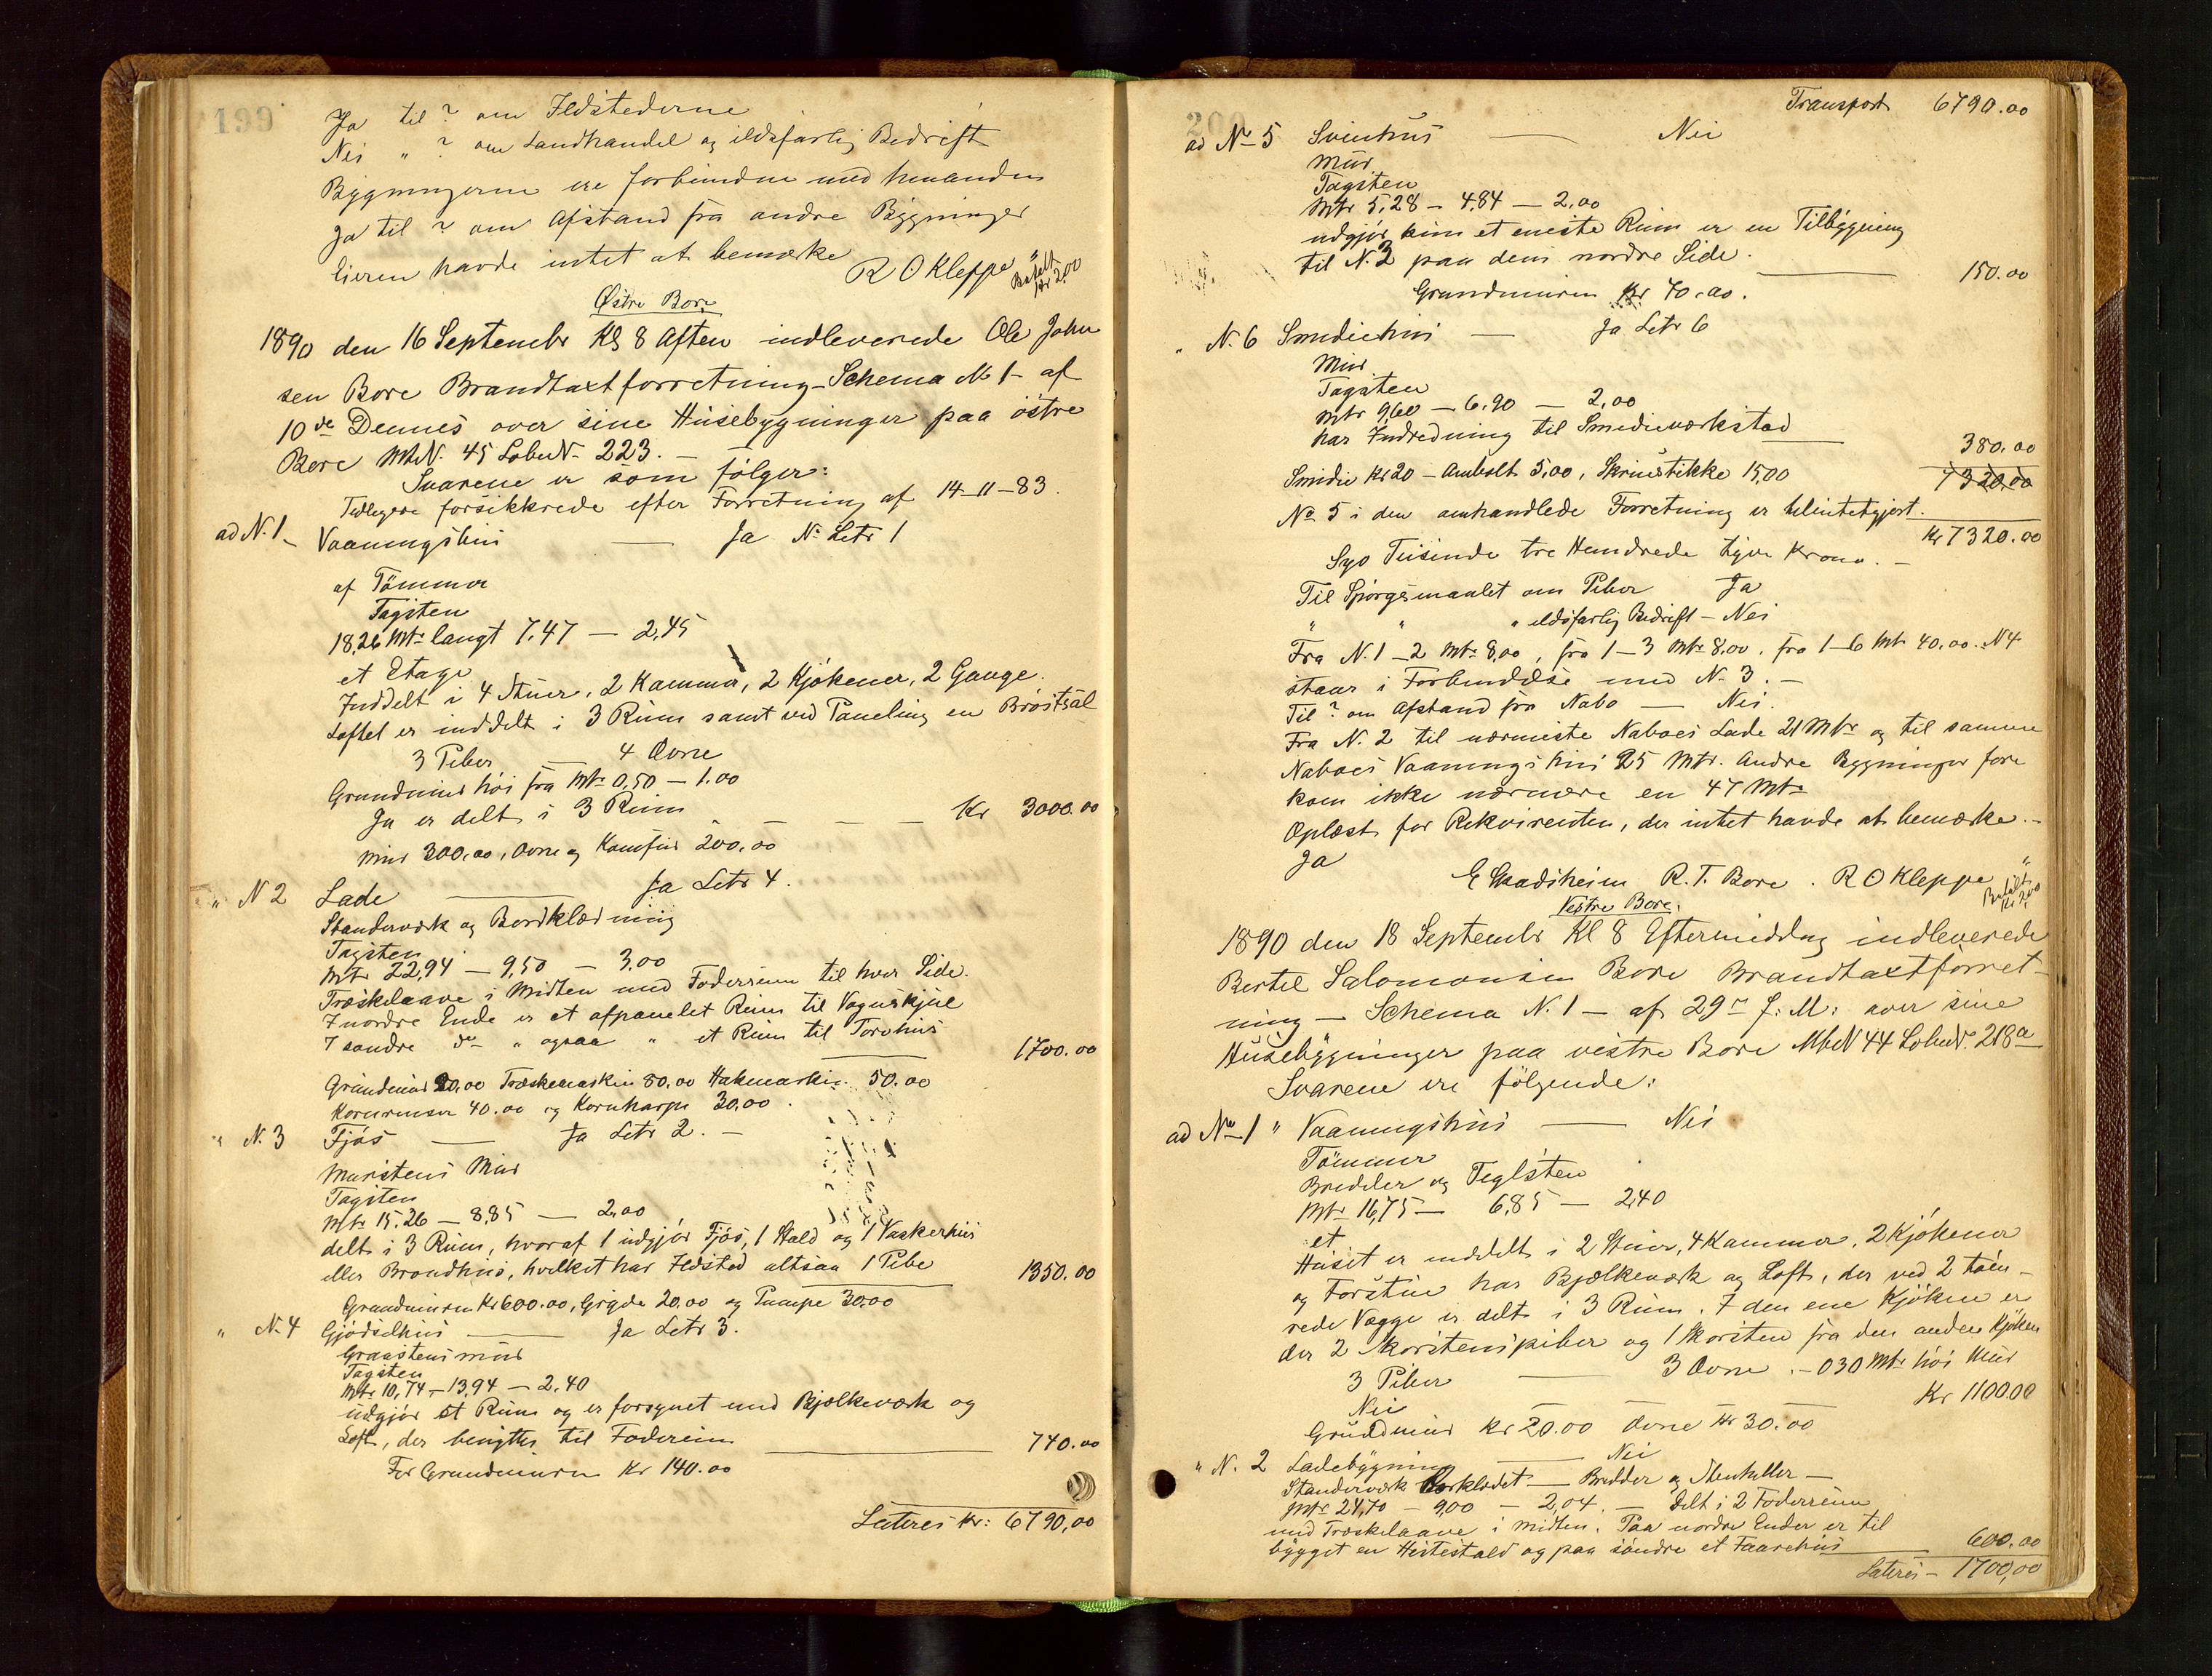 199
Ja til ? om Ildstederne
Nei " ? om Landhandel og ildsfarlig Bedrift
Bygningerne ere forbundne med hinanden
Ja til ? om Afstand fra andre Bygninger
Eieren havde intet at bemærke
R O Kleppe "
Betalt
Kr 2,00
Østre Bore
1890 den 16 Septembr Kl 8 Aften indleverede Ole John
sen Bore Brandtaxtforretning - Schema No 1 - af
10de Dennes over sine Husebygninger paa østre
Bore Mt N. 45 Lobe N- 223. -
Svarene er som følger:
Tidligere forsikkrede efter Forretning af 14-11-83.
ad N. 1 - Vaaningshus — Ja No Letr 1
af Tømmer
Tagsten
18,26 Mtr langt 7,47 — 2,45
et Etage
Inddelt i 4 Stuer, 2 Kammer, 2 Kjøkener, 2 Gange.
Loftet er inddelt i 3 Rum samt ved Paneling en Brøstsal
3 Piber — 4 Ovne
Grundmur høi fra Mtr 0,50 — 1.00
Ja er delt i 3 Rum — — — — Kr 3000.00
Mur 300,00, Ovne og Komfur 200.00
" N 2 Lade — Ja Letr 4.
Standerværk og Bordklædning
Tagsten
Mtr 22,94 — 9,50 — 3,00
Træskelaave i Midten med Foderrum til hver Side.
I nordre Ende er et afpanelet Rum til Vognskjul
I søndre do " ogsaa " et Rum til Torvhus
1700.00
Grundmur 20,00 Træskemaskin 80.00 Hakmaskin 50.00
Kornrenser 40.00 og Kornharpe 30,00.
" N. 3 Fjøs — Ja Letr 2. -
Murstens Mur
Tagsten
Mtr 15.26 — 8,85 — 2,00
delt i 3 Rum, hvoraf 1 udgjør Fjøs, 1 Stald og 1 Vaskerhus
eller Brondhus, hvilket har Ildsted altsaa 1 Pibe
1350.00
Grundmuren Kr 600.00, Gryde 20.00 og Pumpe 30,00
" N. 4 Gjødselhus — Ja Letr 3.
Graastensmur
Tagsten
Mtr 10,74 - 13,94 — 2,40
udgjør et Rum og er forsynet med Bjælkeværk og
Loft, der benyttes til Foderrum — 740.00
For Grundmuren Kr 140.00
Lateres Kr: 6790,00
200
Transport 6790.00
ad No 5 Svinhus — Nei
Mur
Tagsten
Mtr 5,28 - 4,84 — 2,00
udgjør kun et eneste Rum er en Tilbygning
til N. 2 paa dens nordre Side. — 150.00
Grundmuren Kr 40.00.
" N. 6 Smediehus — Ja Letr 6
Mur
Tagsten
Mtr 9,60 — 6,90 — 2,00
har Indredning til Smedieværksted — 380.00
Smidie Kr 20 - Ambolt 5,00, Skrustikke 15,00 7320,00
No 5 i den omhandlede Forretning er tilintetgjort.
Kr 7320.00
Syv Tusinde tre Hundrede tyve Kroner. -
Til Spørgsmaalet om Piber Ja
" " " ildsfarlig Bedrift - Nei
Fra N. 1 - 2 Mtr 8,00, fra 1 - 3 Mtr 8,00, fra 1 - 6 Mtr 40.00. N 4
staar i Forbindelse med N. 3. -
Til ? om Afstand fra Nabo — Nei.
Fra N. 2 til nærmeste Naboes Lade 21 Mtr og til samme
Naboes Vaaningshus 25 Mtr. Andre Bygninger fore
kom ikke nærmere en 47 Mtr
Oplæst for Rekvirenten, der intet havde at bemærke. -
Ja
E Gaadsheim R. T. Bore. R O Kleppe "
Betalt
Kr 2,00
Vestre Bore.
1890 den 18 Septembr Kl 8 Eftermiddag indleverede
Bertel Salomonsen Bore Brandtaxtforret-
ning — Schema N. 1 — af 29de f. M. over sine
Husebygninger paa vestre Bore Mt N 44 Lobe N. 218a
Svarene ere følgende:
ad No 1 " Vaaningshus — Nei
Tømmer
Bredder og Teglsten
Mtr 16,75 — 6,85 — 2,40
et
Huset er inddelt i 2 Stuer, 4 Kammer, 2 Kjøkener
og Forstue har Bjælkeværk og Loft, der ved 2 tøm-
rede Vægge er delt i 3 Rum. I den ene Kjøken er
der 2 Skorstenspiber og 1 Skorsten fra den anden Kjøken
3 Piber — 3 Ovne. - 030 Mtr høi Mur
Nei — — — Kr 1100.00
Grundmur Kr 20.00 Ovne Kr 30.00
" N. 2 Ladebygning — Nei
Standerværk Bordklædet — Bredder og Stenheller —
Mtr 24,70 - 9,00 - 2,04. — delt i 2 Foderrum
med Træskelaave i Midten. Paa nordre Ender er til
bygget en Hestestald og paa søndre et Faarehus — 600.00
Lateres - 1700,00